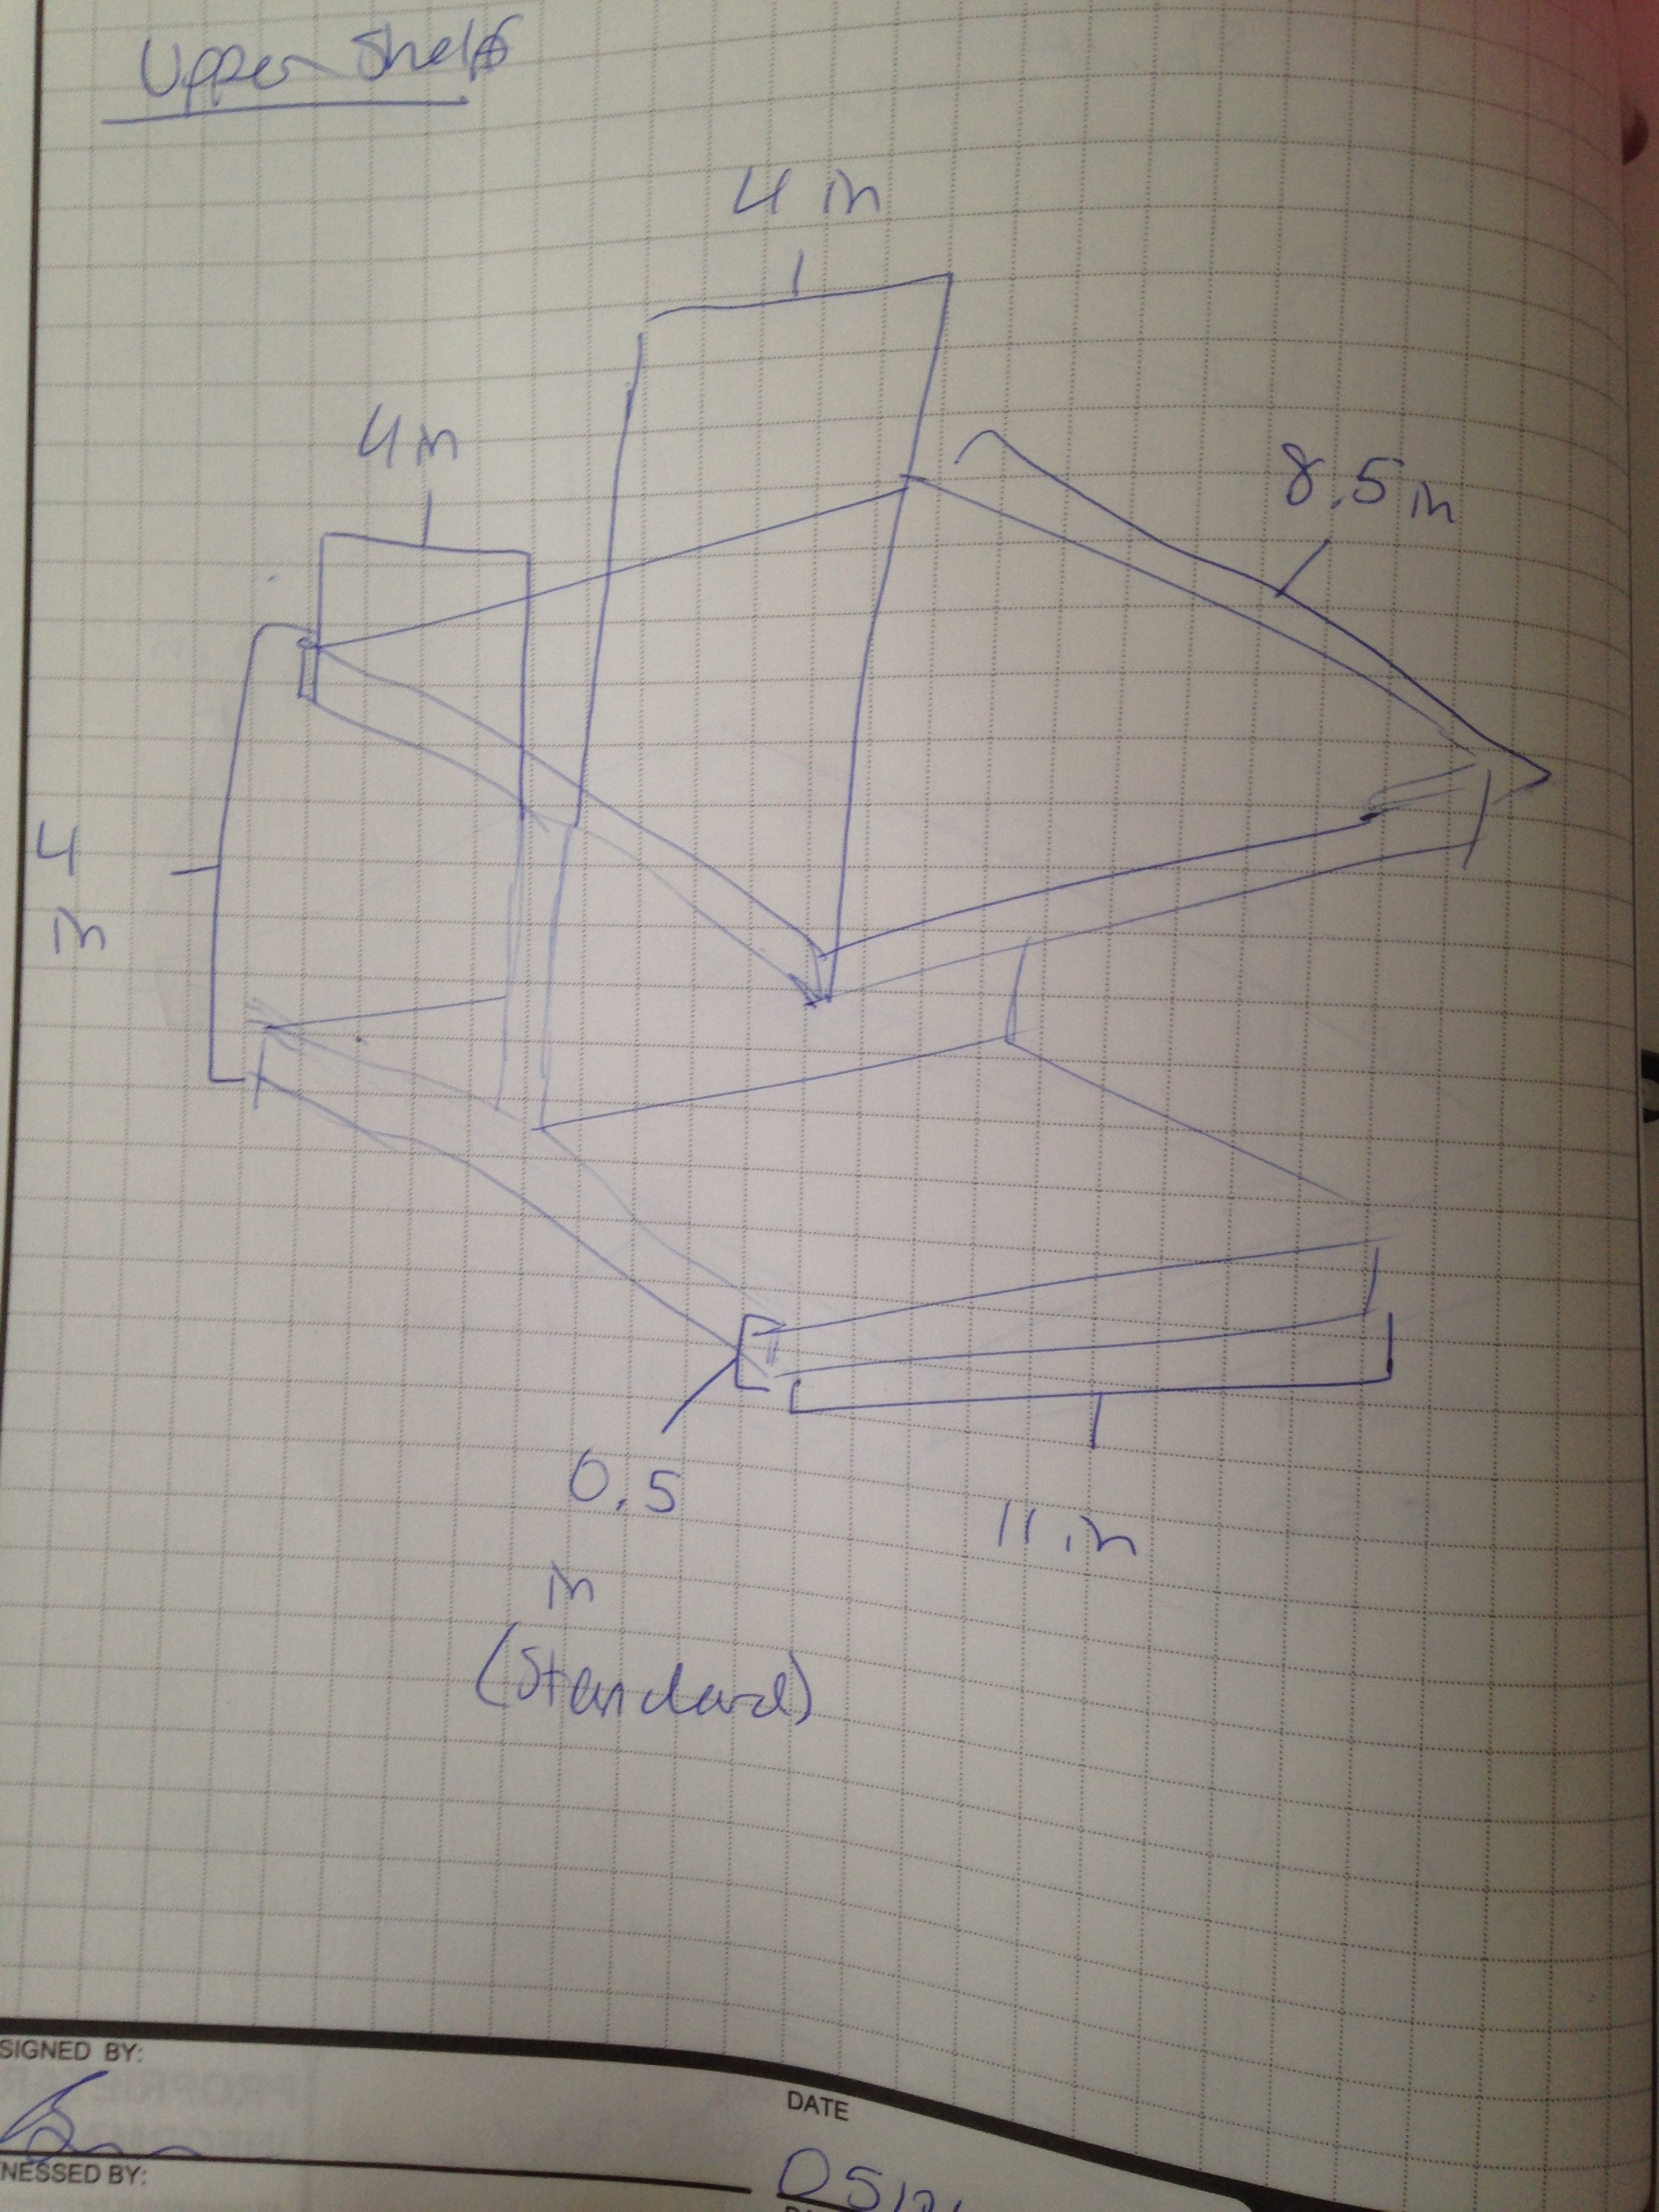 Upper Shelf
4 in
4 in
8.5 in
4
in
0.5
in
(Standard)
11 in
SIGNED BY:
DATE
NESSED BY: